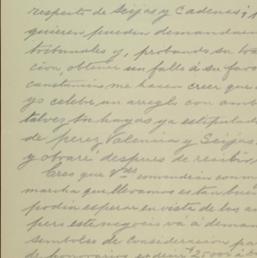 respecto de Seijas y Cadenas;
quieren pueden demandar
tribunales y, probando su
ción, obtener un fallo á su favor
cunstancias me hacen creer que
yo celebre un arreglo con amb
talvez, haya ya estipulado
de perez, Valencia y Seijas
y obraré despues de recibir
Creo que Vdes convendrán con
marcha que llevamos es tan buen
podia esperar en vista de los
pero este negocio vá á deman
sembolsos de consideracion pa
de honorarios